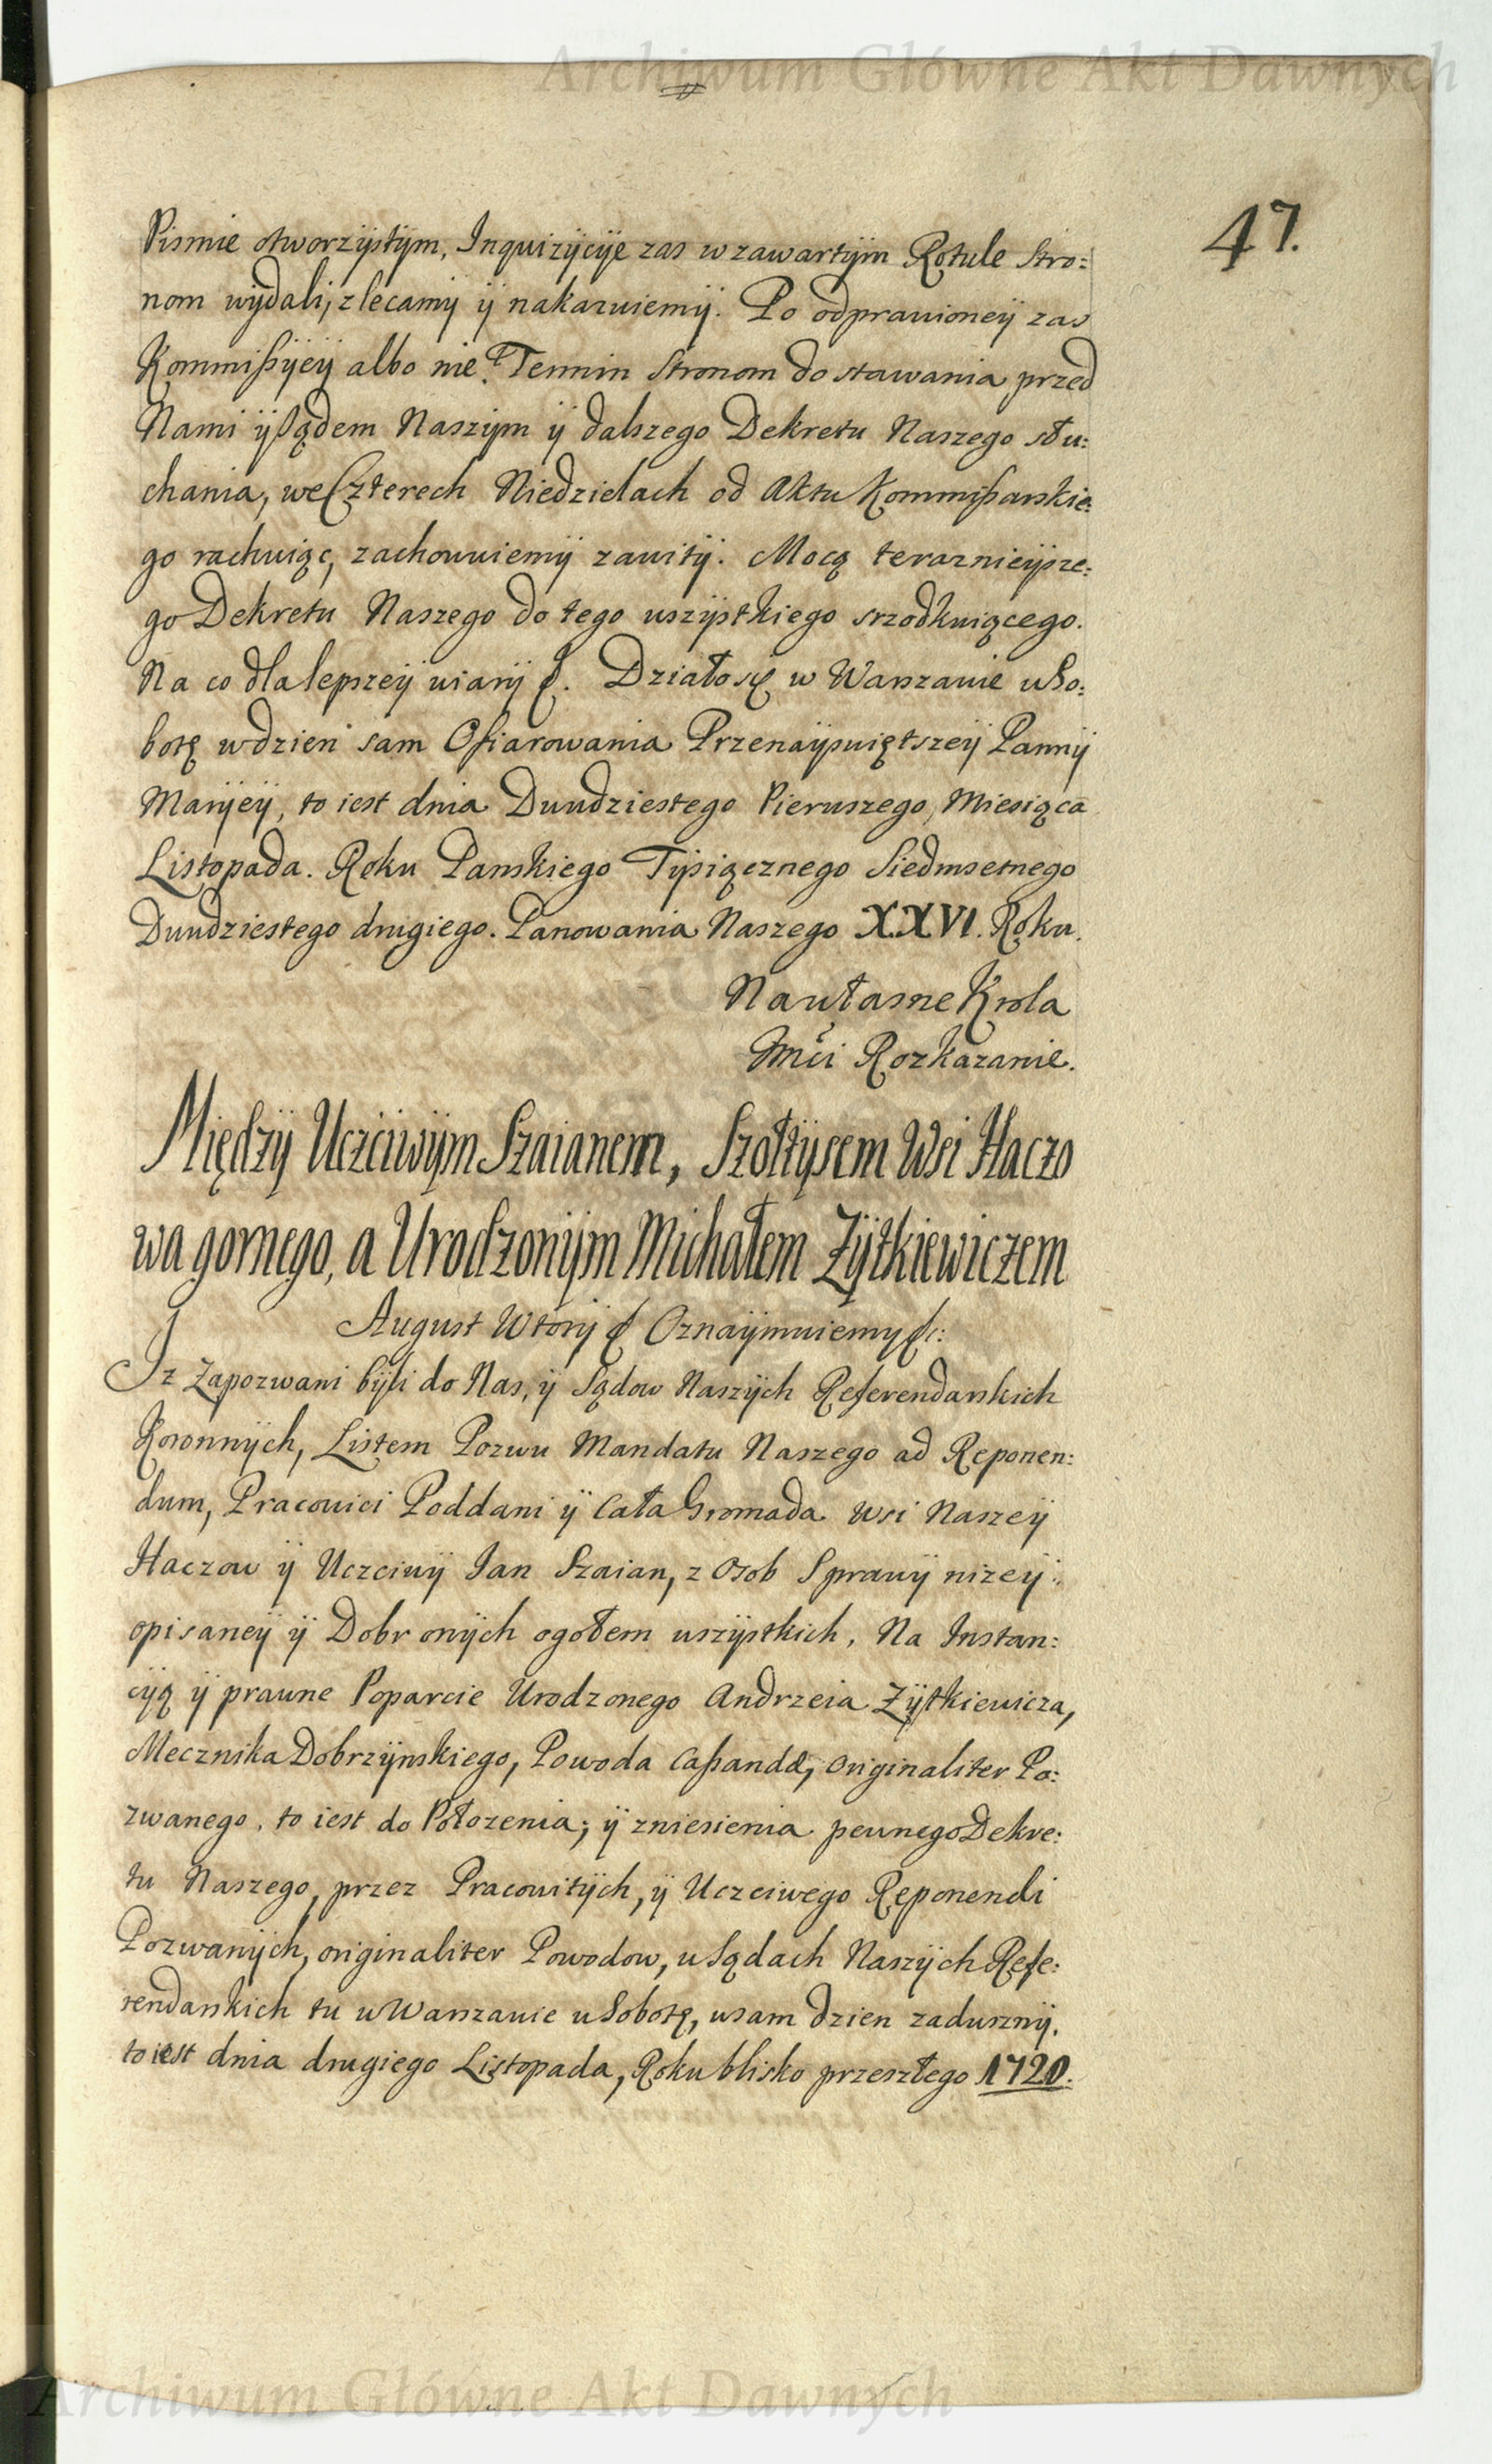 Archiwum Główne Akt Dawnych
47.
Pismie otworzÿstÿm, Inquizÿcÿe zas w zawartÿm Rotule Stro:
nom wÿdali, zlecamÿ ÿ nakazuiemÿ. Po odprawioneÿ zas
Kommißÿeÿ albo nie. Termin Stronom do stawania przed
Nami ÿ Sądem Naszÿm ÿ dalszego Dekretu Naszego słu:
chania, we Czterech Niedzielach od Aktu Kommißarskie:
go rachuiąc, zachowuiemÿ zawitÿ. Mocą teraznieÿsze:
go Dekretu Naszego do tego wszÿstkiego srzodkuiącego.
Na co dla lepszeÿ wiarÿ &. Działo się w Warszawie w So:
botę w dzien sam Ofiarowania Przenaÿswiętszeÿ Pannÿ
Marÿeÿ, to iest dnia Dwudziestego Pierwszego, Miesiąca
Listopada. Roku Panskiego Tÿsiącznego Siedmsetnego
Dwudziestego drugiego. Panowania Naszego XXVI. Roku.
Na własne Krola
Jmći Rozkazanie.
Międzÿ Uczciwÿm Szaianem, Szołtÿsem Wsi Haczo
wa gornego, a Urodzonÿm Michałem Zÿtkiewiczem
August Wtorÿ & Oznaÿmuiemy &c:
Iz Zapozwani bÿli do Nas, ÿ Sądow Naszÿch Referendarskich
Koronnÿch, Listem Pozwu Mandatu Naszego ad Reponen:
dum, Pracowici Poddani ÿ Cała Gromada Wsi Naszeÿ
Haczow ÿ Uczciwÿ Jan Szaian, z Osob Sprawÿ nizeÿ:
opisaneÿ ÿ Dobr onÿch ogołem wszÿstkich, Na Instan:
cÿą ÿ prawne Poparcie Urodzonego Andrzeia Zÿtkiewicza,
Mecznika Dobrzÿnskiego, Powoda Caßandæ, originaliter Po:
zwanego, to iest do Połozenia, ÿ zniesienia pewnego Dekre:
tu Naszego, przez Pracowitÿch, ÿ Uczciwego Reponendi
Pozwanÿch, originaliter Powodow, w Sądach Naszÿch Refe:
rendarskich tu w Warszawie w Sobotę, w sam dzien zadusznÿ,
to iest dnia drugiego Listopada, Roku blisko przeszłego 1720.
Archiwum Główne Akt Dawnych